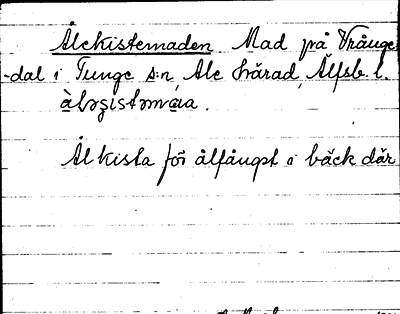 Ålekistemaden Mad på Vrånge
-dal i Tunge s:n, Ale härad, Älfsb. l.
Ålkista för ålfångst i bäck där